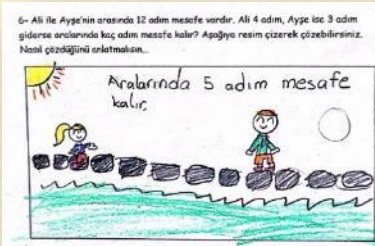 6- Ali ile Ayşe'nin arasında 12 adım mesafe vardır. Ali 4 adım, Ayşe ise 3 adım
giderse aralarında kaç adım mesafe kalır? Aşağıya resim çizerek çözebilirsiniz.
Nasıl çözdüğünü anlatmalısın...
Aralarında 5 adım mesafe
kalır.